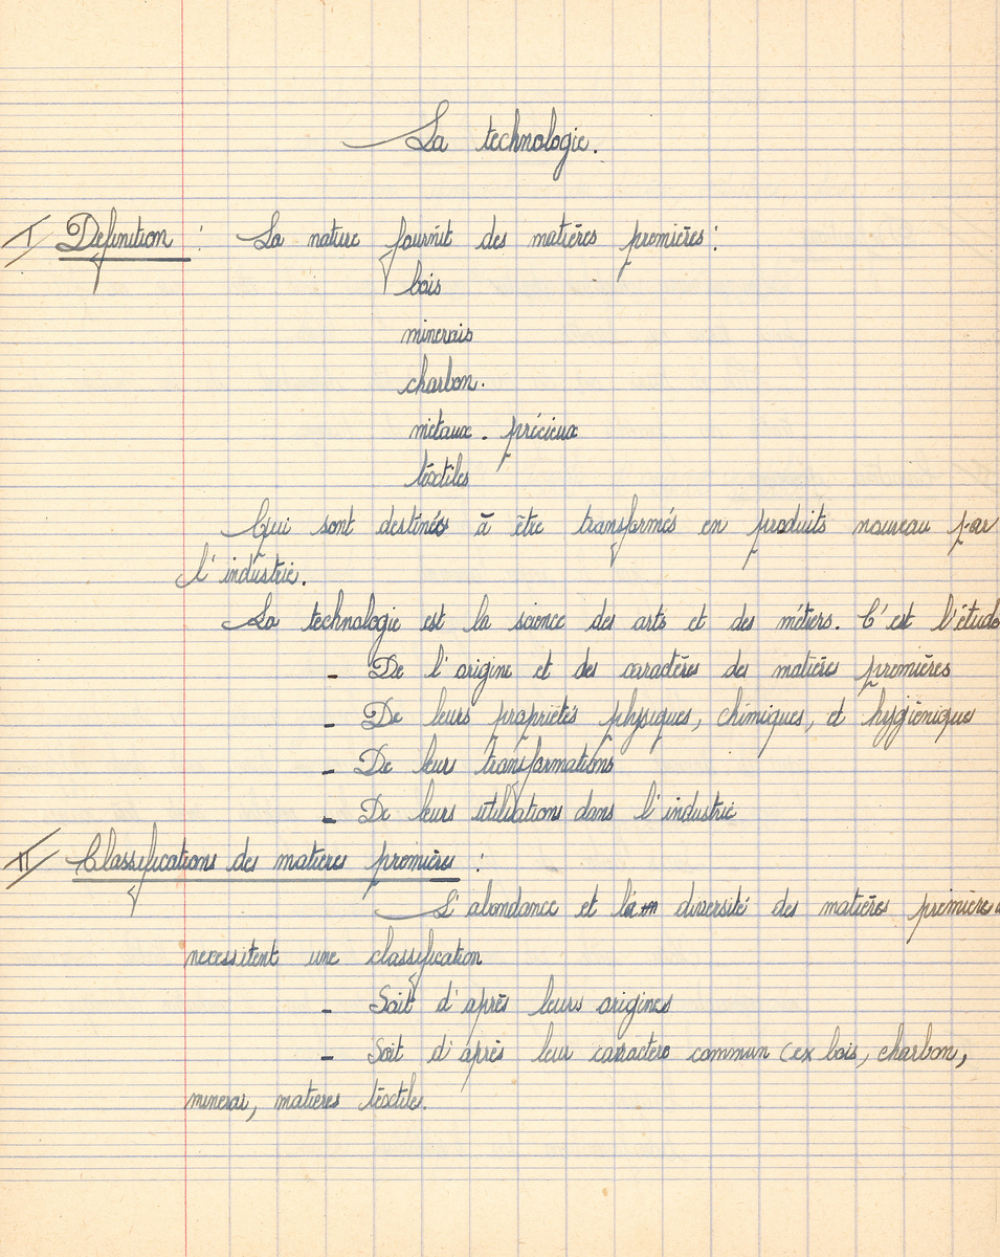 La technologie.
I Définition : La nature fournit des matières premières :
bois
minerais
charbon.
métaux. précieux
téxtiles
Qui sont destinés à être transformés en produits nouveau par
l'industrie.
La technologie est la science des arts et des métiers. C'est l'étude
- De l'origine et des caractères des matières premières
- De leurs propriétés physiques, chimiques, et hygiènique
- De leurs transformations
- De leurs utilisations dans l'industrie
II Classifications des matières premières :
L'abondance et la diversité des matières première
necessitent une classification
- Soit d'après leurs origines
- Soit d'après leur caractère commun (ex bois, charbon,
minerai, matières téxtile.